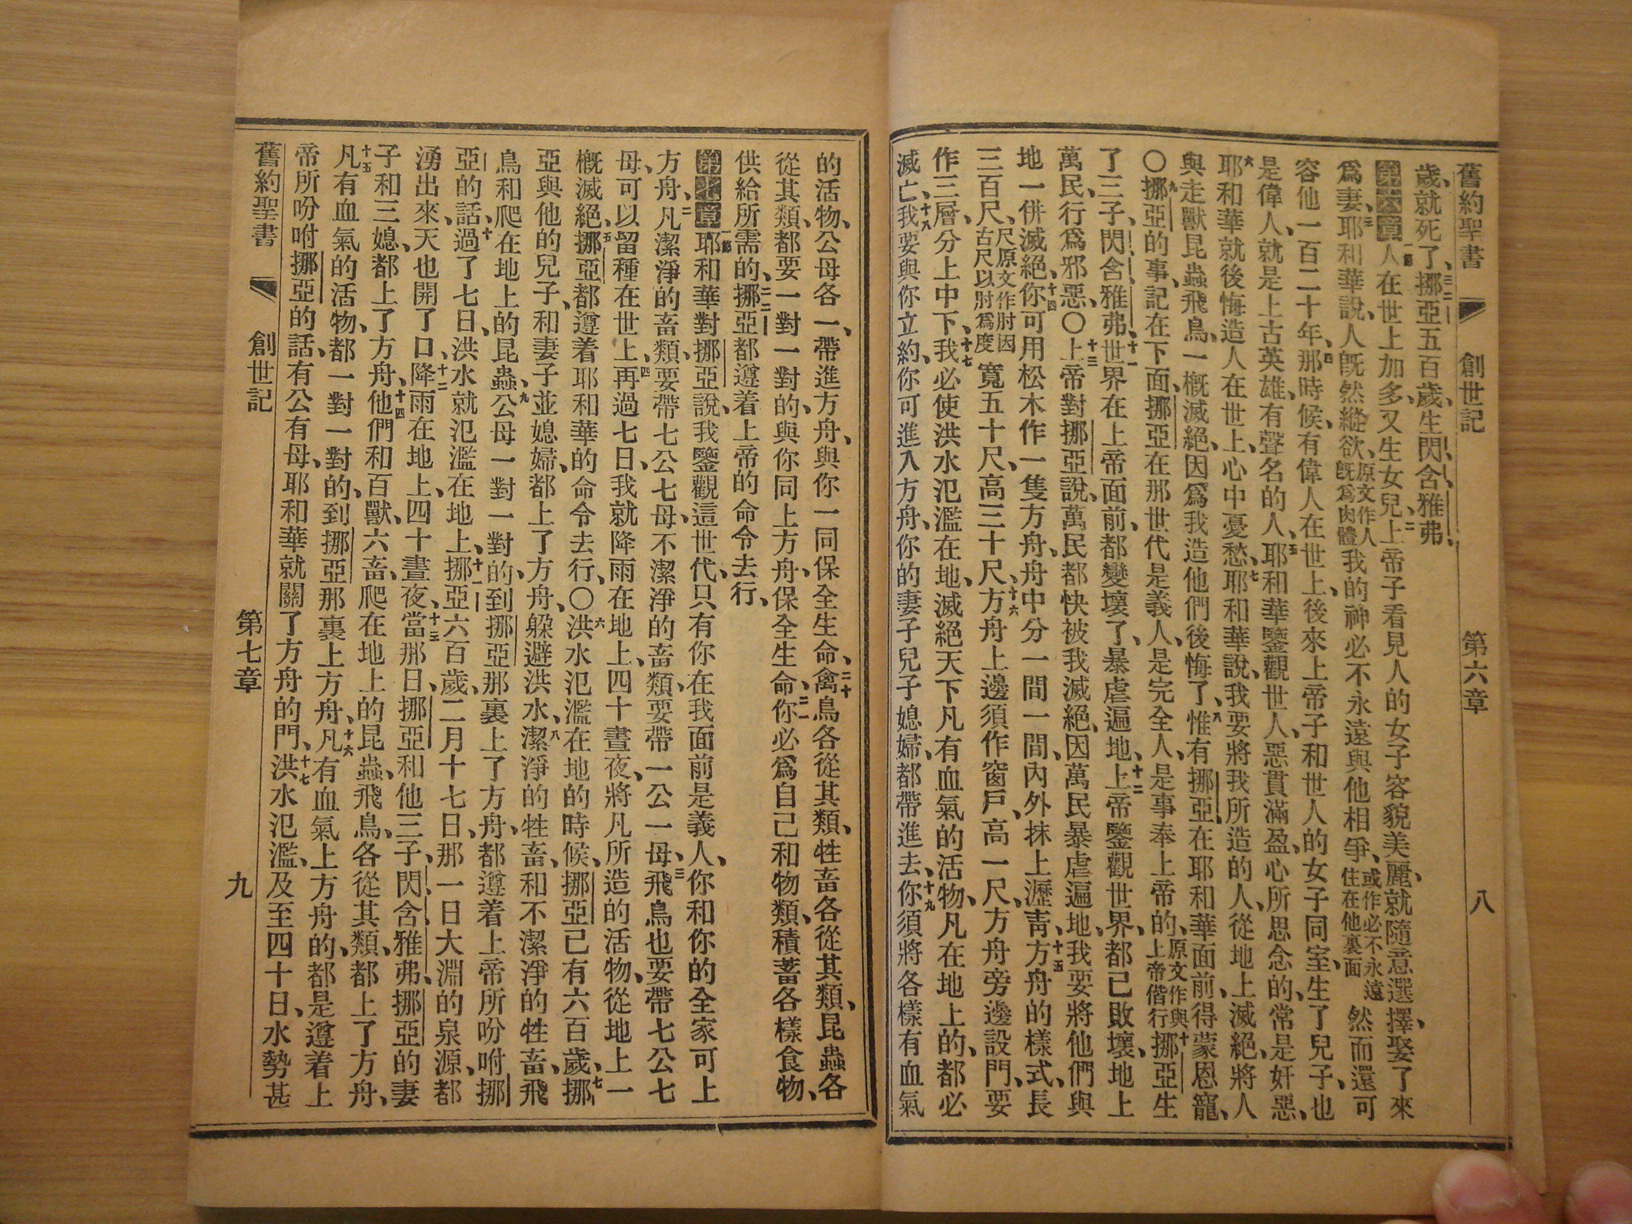 舊約聖書 創世記 第六章 八
歲、就死了、三二挪亞五百歲、生閃含雅弗、
第六章一節人在世上加多、又生女兒、二上帝子看見人的女子容貌美麗、就隨意選擇娶了來
爲妻、三耶和華說、人旣然縱欲、原文作人旣爲肉體我的神必不永遠與他相爭、或作必不永遠住在他裏面然而還可
容他一百二十年、四那時候、有偉人在世上、後來上帝子和世人的女子同室、生了兒子、也
是偉人、就是上古英雄、有聲名的人、五耶和華鑒觀世人、惡貫滿盈、心所思念的、常是奸惡、
六耶和華就後悔造人在世上、心中憂愁、七耶和華說、我要將我所造的人、從地上滅絕、將人
與走獸昆蟲飛鳥、一槪滅絕、因爲我造他們後悔了、八惟有挪亞在耶和華面前得蒙恩寵、
〇九挪亞的事、記在下面、挪亞在那世代是義人、是完全人、是事奉上帝的、原文作與上帝偕行十挪亞生
了三子、閃含雅弗、十一世界在上帝面前、都變壞了、暴虐遍地、十二上帝鑒觀世界、都已敗壞、地上
萬民、行爲邪惡、〇十三上帝對挪亞說、萬民都快被我滅絕、因萬民暴虐遍地、我要將他們與
地一併滅絕、十四你可用松木作一隻方舟、舟中分一間一間、內外抹上瀝青、十五方舟的樣式、長
三百尺、尺原文作肘因古尺以肘爲度寬五十尺、高三十尺、十六方舟上邊須作窗戶、高一尺、方舟旁邊設門、要
作三層、分上中下、十七我必使洪水氾濫在地、滅絕天下凡有血氣的活物、凡在地上的、都必
滅亡、十八我要與你立約、你可進入方舟、你的妻子兒子媳婦、都帶進去、十九你須將各樣有血氣
的活物、公母各一、帶進方舟、與你一同保全生命、二十禽鳥各從其類、牲畜各從其類、昆蟲各
從其類、都要一對一對的、與你同上方舟、保全生命、二一你必爲自己和物類、積蓄各樣食物、
供給所需的、二二挪亞都遵着上帝的命令去行、
第七章一節耶和華對挪亞說、我鑒觀這世代、只有你在我面前是義人、你和你的全家可上
方舟、二凡潔淨的畜類、要帶七公七母、不潔淨的畜類、要帶一公一母、三飛鳥也要帶七公七
母、可以留種在世上、四再過七日、我就降雨在地上、四十晝夜、將凡所造的活物、從地上一
槪滅絕、五挪亞都遵着耶和華的命令去行、〇六洪水氾濫在地的時候、挪亞已有六百歲、七挪
亞與他的兒子、和妻子並媳婦、都上了方舟、躲避洪水、八潔淨的牲畜、和不潔淨的牲畜、飛
鳥和爬在地上的昆蟲、九公母一對一對的、到挪亞那裏上了方舟、都遵着上帝所吩咐挪
亞的話、十過了七日、洪水就氾濫在地上、十一挪亞六百歲、二月十七日、那一日大淵的泉源、都
湧出來、天也開了口、十二降雨在地上、四十晝夜、十三當那日、挪亞和他三子、閃含雅弗、挪亞的妻
子和三媳、都上了方舟、十四他們和百獸、六畜、爬在地上的昆蟲、飛鳥、各從其類、都上了方舟、
十五凡有血氣的活物、都一對一對的、到挪亞那裏上方舟、十六凡有血氣上方舟的、都是遵着上
帝所吩咐挪亞的話、有公有母、耶和華就關了方舟的門、十七洪水氾濫、及至四十日、水勢甚
舊約聖書 創世記 第七章 九